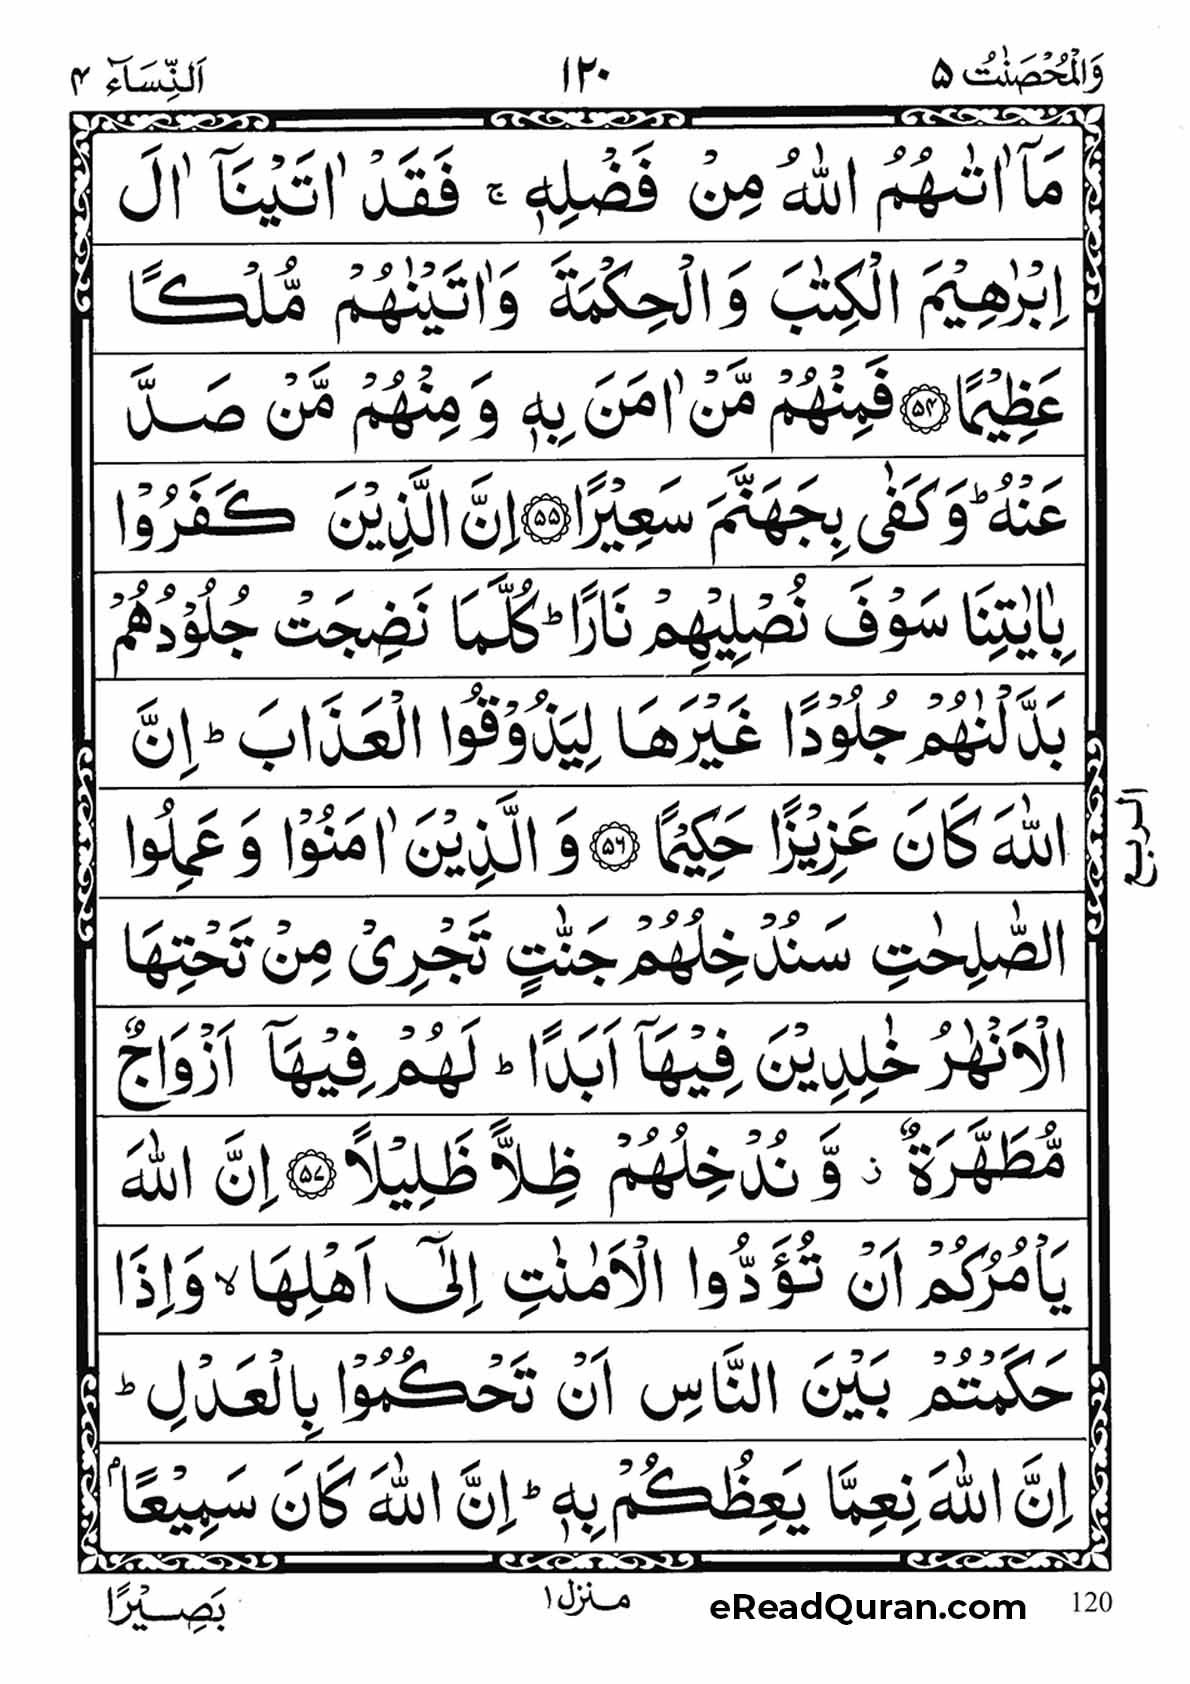 وَالْمُحْصَنٰتُ ۵ ۱۲۰ اَلنِّسَآء ۴
مَاۤ اٰتٰىهُمُ اللّٰهُ مِنْ فَضْلِهٖ ۚ فَقَدْ اٰتَيْنَاۤ اٰلَ
اِبْرٰهِيْمَ الْكِتٰبَ وَ الْحِكْمَةَ وَاٰتَيْنٰهُمْ مُّلْكًا
عَظِيْمًا ﴿۵۴﴾ فَمِنْهُمْ مَّنْ اٰمَنَ بِهٖ وَ مِنْهُمْ مَّنْ صَدَّ
عَنْهُ ؕ وَ كَفٰى بِجَهَنَّمَ سَعِيْرًا ﴿۵۵﴾ اِنَّ الَّذِيْنَ كَفَرُوْا
بِاٰيٰتِنَا سَوْفَ نُصْلِيْهِمْ نَارًا ؕ كُلَّمَا نَضِجَتْ جُلُوْدُهُمْ
بَدَّلْنٰهُمْ جُلُوْدًا غَيْرَهَا لِيَذُوْقُوا الْعَذَابَ ؕ اِنَّ
اللّٰهَ كَانَ عَزِيْزًا حَكِيْمًا ﴿۵۶﴾ وَ الَّذِيْنَ اٰمَنُوْا وَ عَمِلُوا
الصّٰلِحٰتِ سَنُدْخِلُهُمْ جَنّٰتٍ تَجْرِيْ مِنْ تَحْتِهَا
الْاَنْهٰرُ خٰلِدِيْنَ فِيْهَاۤ اَبَدًا ؕ لَهُمْ فِيْهَاۤ اَزْوَاجٌ
مُّطَهَّرَةٌ ز وَّ نُدْخِلُهُمْ ظِلًّا ظَلِيْلًا ﴿۵۷﴾ اِنَّ اللّٰهَ
يَاْمُرُكُمْ اَنْ تُؤَدُّوا الْاَمٰنٰتِ اِلٰۤى اَهْلِهَا ۙ وَاِذَا
حَكَمْتُمْ بَيْنَ النَّاسِ اَنْ تَحْكُمُوْا بِالْعَدْلِ ؕ
اِنَّ اللّٰهَ نِعِمَّا يَعِظُكُمْ بِهٖ ؕ اِنَّ اللّٰهَ كَانَ سَمِيْعًاۢ
الربع
بَصِيْرًا منزل ۱ eReadQuran.com 120